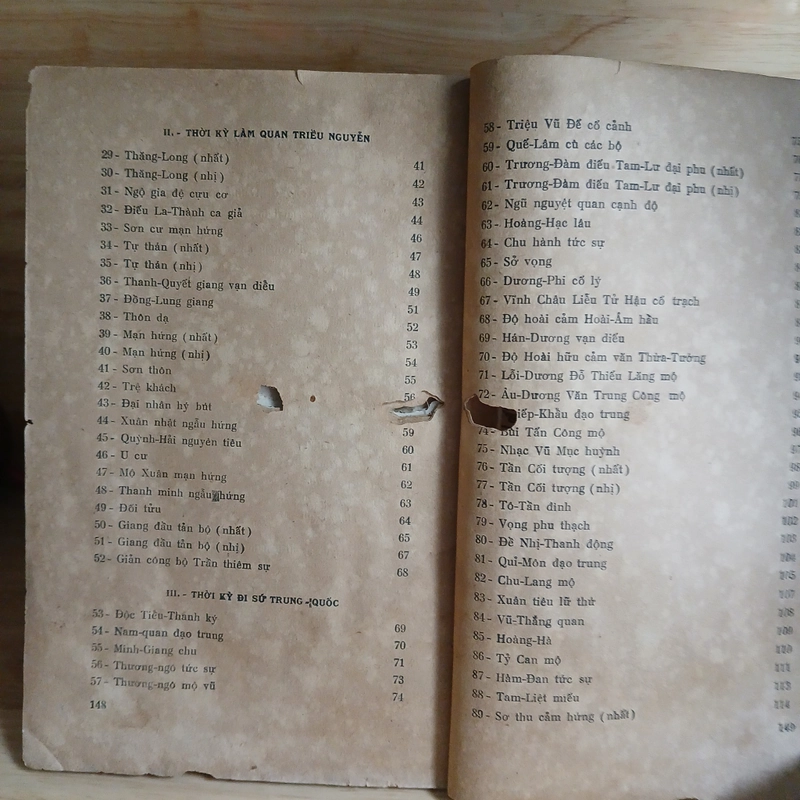 II. - THỜI KỲ LÀM QUAN TRIỀU NGUYỄN
29 - Thăng-Long (nhất) 41
30 - Thăng-Long (nhị) 42
31 - Ngộ gia đệ cựu cơ 43
32 - Điếu La-Thành ca giả 44
33 - Sơn cư mạn hứng 46
34 - Tự thán (nhất) 47
35 - Tự thán (nhị) 48
36 - Thanh-Quyết giang vạn diểu 49
37 - Đồng-Lung giang 51
38 - Thôn dạ 52
39 - Mạn hứng (nhất) 53
40 - Mạn hứng (nhị) 54
41 - Sơn thôn 55
42 - Trệ khách 56
43 - Đại nhân hý bút
44 - Xuân nhật ngẫu hứng 59
45 - Quỳnh-Hải nguyên tiêu 60
46 - U cư 61
47 - Mộ Xuân mạn hứng 62
48 - Thanh minh ngẫu hứng 63
49 - Đối tửu 64
50 - Giang đầu tản bộ (nhất) 65
51 - Giang đầu tản bộ (nhị) 67
52 - Giản công bộ Trần thiêm sự 68
III. - THỜI KỲ ĐI SỨ TRUNG-QUỐC
53 - Độc Tiểu-Thanh ký 69
54 - Nam-quan đạo trung 70
55 - Minh-Giang chu 71
56 - Thương-ngô tức sự 73
57 - Thương-ngô mộ vũ 74
148
58 - Triệu Vũ Đế cố cảnh
59 - Quế-Lâm cù các bộ
60 - Trương-Đàm điếu Tam-Lư đại phu (nhất)
61 - Trương-Đàm điếu Tam-Lư đại phu (nhị)
62 - Ngũ nguyệt quan cạnh độ
63 - Hoàng-Hạc lâu
64 - Chu hành tức sự
65 - Sở vọng
66 - Dương-Phi cố lý
67 - Vĩnh Châu Liễu Tử Hậu cố trạch
68 - Độ hoài cảm Hoài-Âm hầu
69 - Hán-Dương vạn diểu
70 - Độ Hoài hữu cảm văn Thừa-Tướng
71 - Lỗi-Dương Đỗ Thiếu Lăng mộ
72 - Âu-Dương Văn Trung Công mộ
đạo trung
74 - Bùi Tấn Công mộ
75 - Nhạc Vũ Mục huỳnh
76 - Tần Cối tượng (nhất)
77 - Tần Cối tượng (nhị)
78 - Tô-Tần đình
79 - Vọng phu thạch
80 - Đề Nhị-Thanh động
81 - Quỉ-Môn đạo trung
82 - Chu-Lang mộ
83 - Xuân tiêu lữ thứ
84 - Vũ-Thắng quan
85 - Hoàng-Hà
86 - Tỷ Can mộ
87 - Hàm-Đan tức sự
88 - Tam-Liệt miếu
89 - Sơ thu cảm hứng (nhất)
149